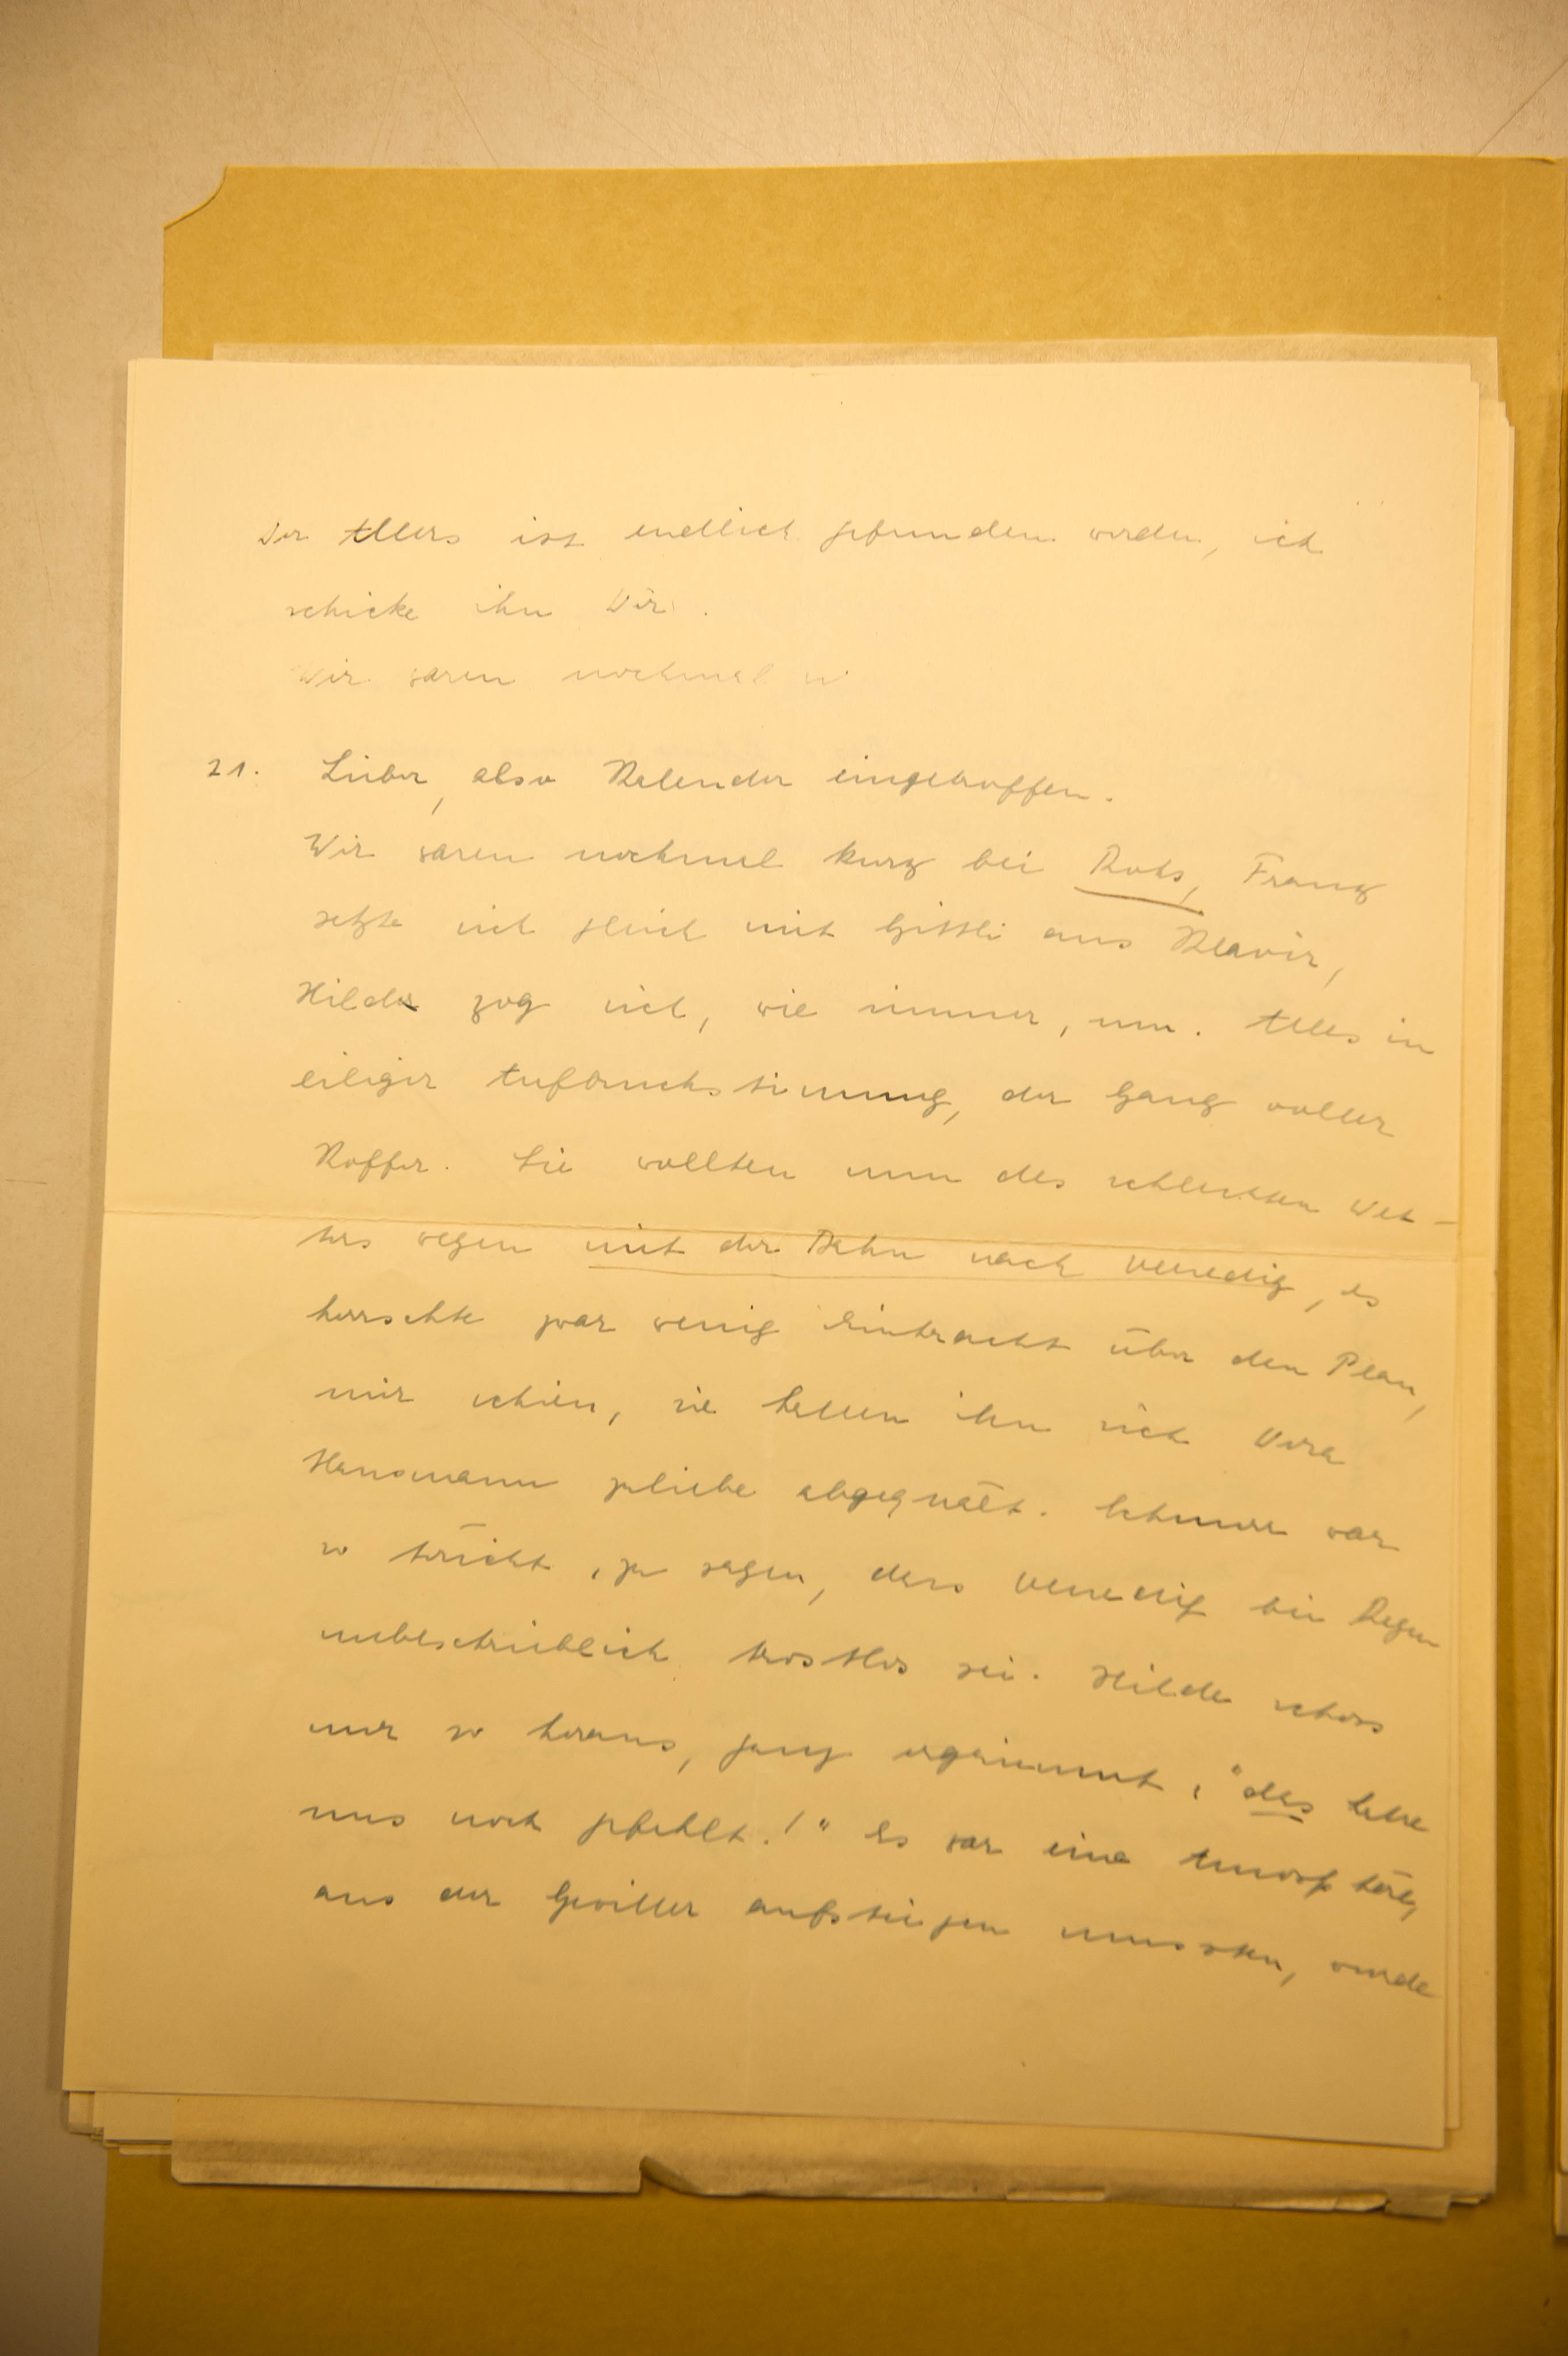 Der Allers ist endlich gefunden worden, ich
schicke ihn Dir.
Wir waren nochmal
21. Lieber, also Kalender eingetroffen.
Wir waren nochmal kurz bei Rohs, Franz
setzte sich gleich mit Gittli ans Klavier,
Hilde zog sich, wie immer, um. Alles in
eiliger Aufbruchstimmung, der Gang voller
Koffer. Sie wollten nun des schlechten Wet-
ters wegen mit der Bahn nach Venedig, es
herrschte zwar wenig Eintracht über den Plan,
mir schien, sie hatten ihn sich Vera
Hansmann zuliebe abgequält. war
so töricht, zu sagen, dass Venedig bei Regen
unbeschreiblich trostlos sei. Hilde schoss
nur so heraus, ganz ergrimmt, "das hätte
uns noch gefehlt!" Es war eine
aus der aufsteigen mussten, wurde